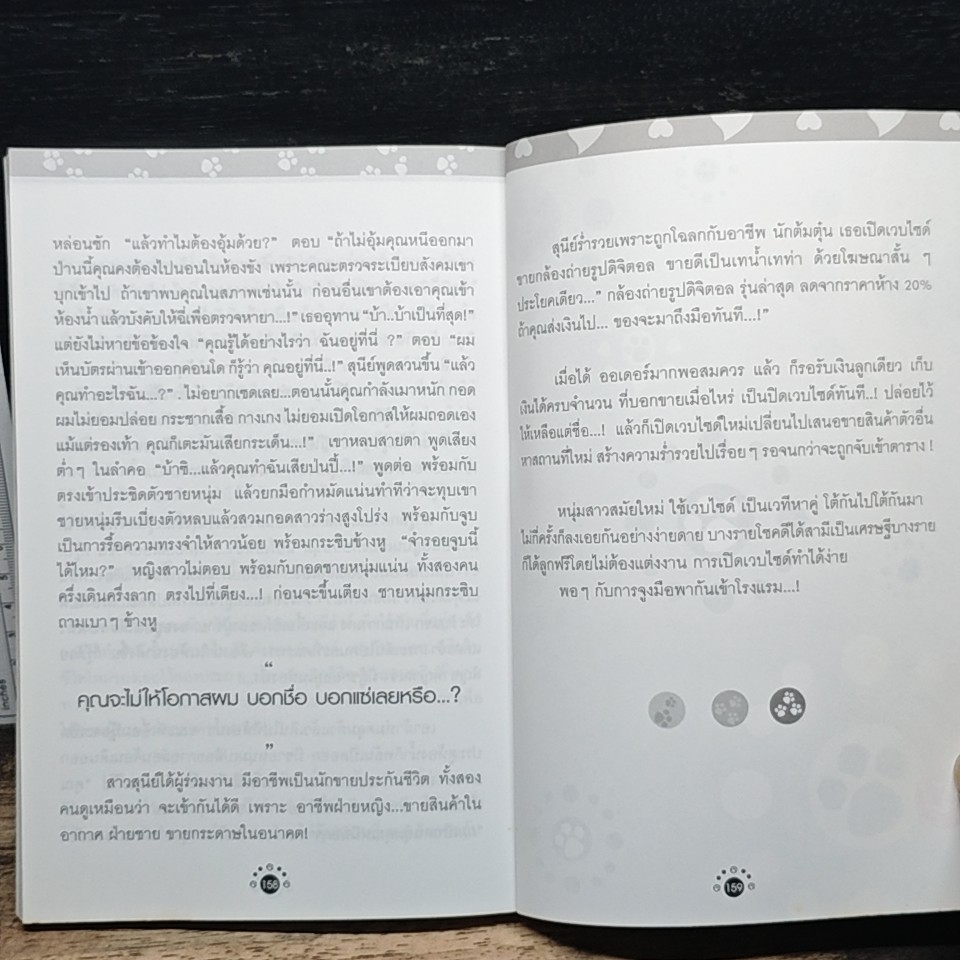 หล่อนซัก "แล้วทำไมต้องอุ้มด้วย?" ตอบ "ถ้าไม่อุ้มคุณหนีออกมา
ป่านนี้คุณคงต้องไปนอนในห้องขัง เพราะคณะตรวจระเบียบสังคมเขา
บุกเข้าไป ถ้าเขาพบคุณในสภาพเช่นนั้น ก่อนอื่นเขาต้องเอาคุณเข้า
ห้องน้ำ แล้วบังคับให้ฉี่เพื่อตรวจหายา...!" เธออุทาน "บ้า..บ้าเป็นที่สุด!"
แต่ยังไม่หายข้อข้องใจ "คุณรู้ได้อย่างไรว่า ฉันอยู่ที่นี่ ?" ตอบ "ผม
เห็นบัตรผ่านเข้าออกคอนโด ก็รู้ว่า คุณอยู่ที่นี่..!" สุนีย์พูดสวนขึ้น "แล้ว
คุณทำอะไรฉัน...?" . ไม่อยากเซดเลย...ตอนนั้นคุณกำลังเมาหนัก กอด
ผมไม่ยอมปล่อย กระชากเสื้อ กางเกง ไม่ยอมเปิดโอกาสให้ผมถอดเอง
แม้แต่รองเท้า คุณก็เตะมันเสียกระเด็น...!" เขาหลบสายตา พูดเสียง
ต่ำๆ ในลำคอ "บ้าซิ...แล้วคุณทำฉันเสียป่นปี้...!" พูดต่อ พร้อมกับ
ตรงเข้าประชิดตัวชายหนุ่ม แล้วยกมือกำหมัดแน่นทำทีว่าจะทุบเขา
ชายหนุ่มรีบเบี่ยงตัวหลบแล้วสวมกอดสาวร่างสูงโปร่ง พร้อมกับจูบ
เป็นการรื้อความทรงจำให้สาวน้อย พร้อมกระซิบข้างหู "จำรอยจูบนี้
ได้ไหม?" หญิงสาวไม่ตอบ พร้อมกับกอดชายหนุ่มแน่น ทั้งสองคน
ครึ่งเดินครึ่งลาก ตรงไปที่เตียง...! ก่อนจะขึ้นเตียง ชายหนุ่มกระซิบ
ถามเบาๆ ข้างหู
"
คุณจะไม่ให้โอกาสผม บอกชื่อ บอกแซ่เลยหรือ...?
"
สาวสุนีย์ได้ผู้ร่วมงาน มีอาชีพเป็นนักขายประกันชีวิต ทั้งสอง
คนดูเหมือนว่า จะเข้ากันได้ดี เพราะ อาชีพฝ่ายหญิง...ขายสินค้าใน
อากาศ ฝ่ายชาย ขายกระดาษในอนาคต!
158
สุนีย์ร่ำรวยเพราะถูกโฉลกกับอาชีพ นักต้มตุ๋น เธอเปิดเวบไซด์
ขายกล้องถ่ายรูปดิจิตอล ขายดีเป็นเทน้ำเทท่า ด้วยโฆษณาสั้น ๆ
ประโยคเดียว..." กล้องถ่ายรูปดิจิตอล รุ่นล่าสุด ลดจากราคาห้าง 20%
ถ้าคุณส่งเงินไป... ของจะมาถึงมือทันที...!"
เมื่อได้ ออเดอร์มากพอสมควร แล้ว ก็รอรับเงินลูกเดียว เก็บ
เงินได้ครบจำนวน ที่บอกขายเมื่อไหร่ เป็นปิดเวบไซด์ทันที..! ปล่อยไว้
ให้เหลือแต่ชื่อ...! แล้วก็เปิดเวบไซด์ใหม่เปลี่ยนไปเสนอขายสินค้าตัวอื่น
หาสถานที่ใหม่ สร้างความร่ำรวยไปเรื่อยๆ รอจนกว่าจะถูกจับเข้าตาราง !
หนุ่มสาวสมัยใหม่ ใช้เวบไซด์ เป็นเวทีหาคู่ โต้กันไปโต้กันมา
ไม่กี่ครั้งก็ลงเอยกันอย่างง่ายดาย บางรายโชคดีได้สามีเป็นเศรษฐีบางราย
ก็ได้ลูกฟรีโดยไม่ต้องแต่งงาน การเปิดเวบไซด์ทำได้ง่าย
พอๆ กับการจูงมือพากันเข้าโรงแรม...!
159